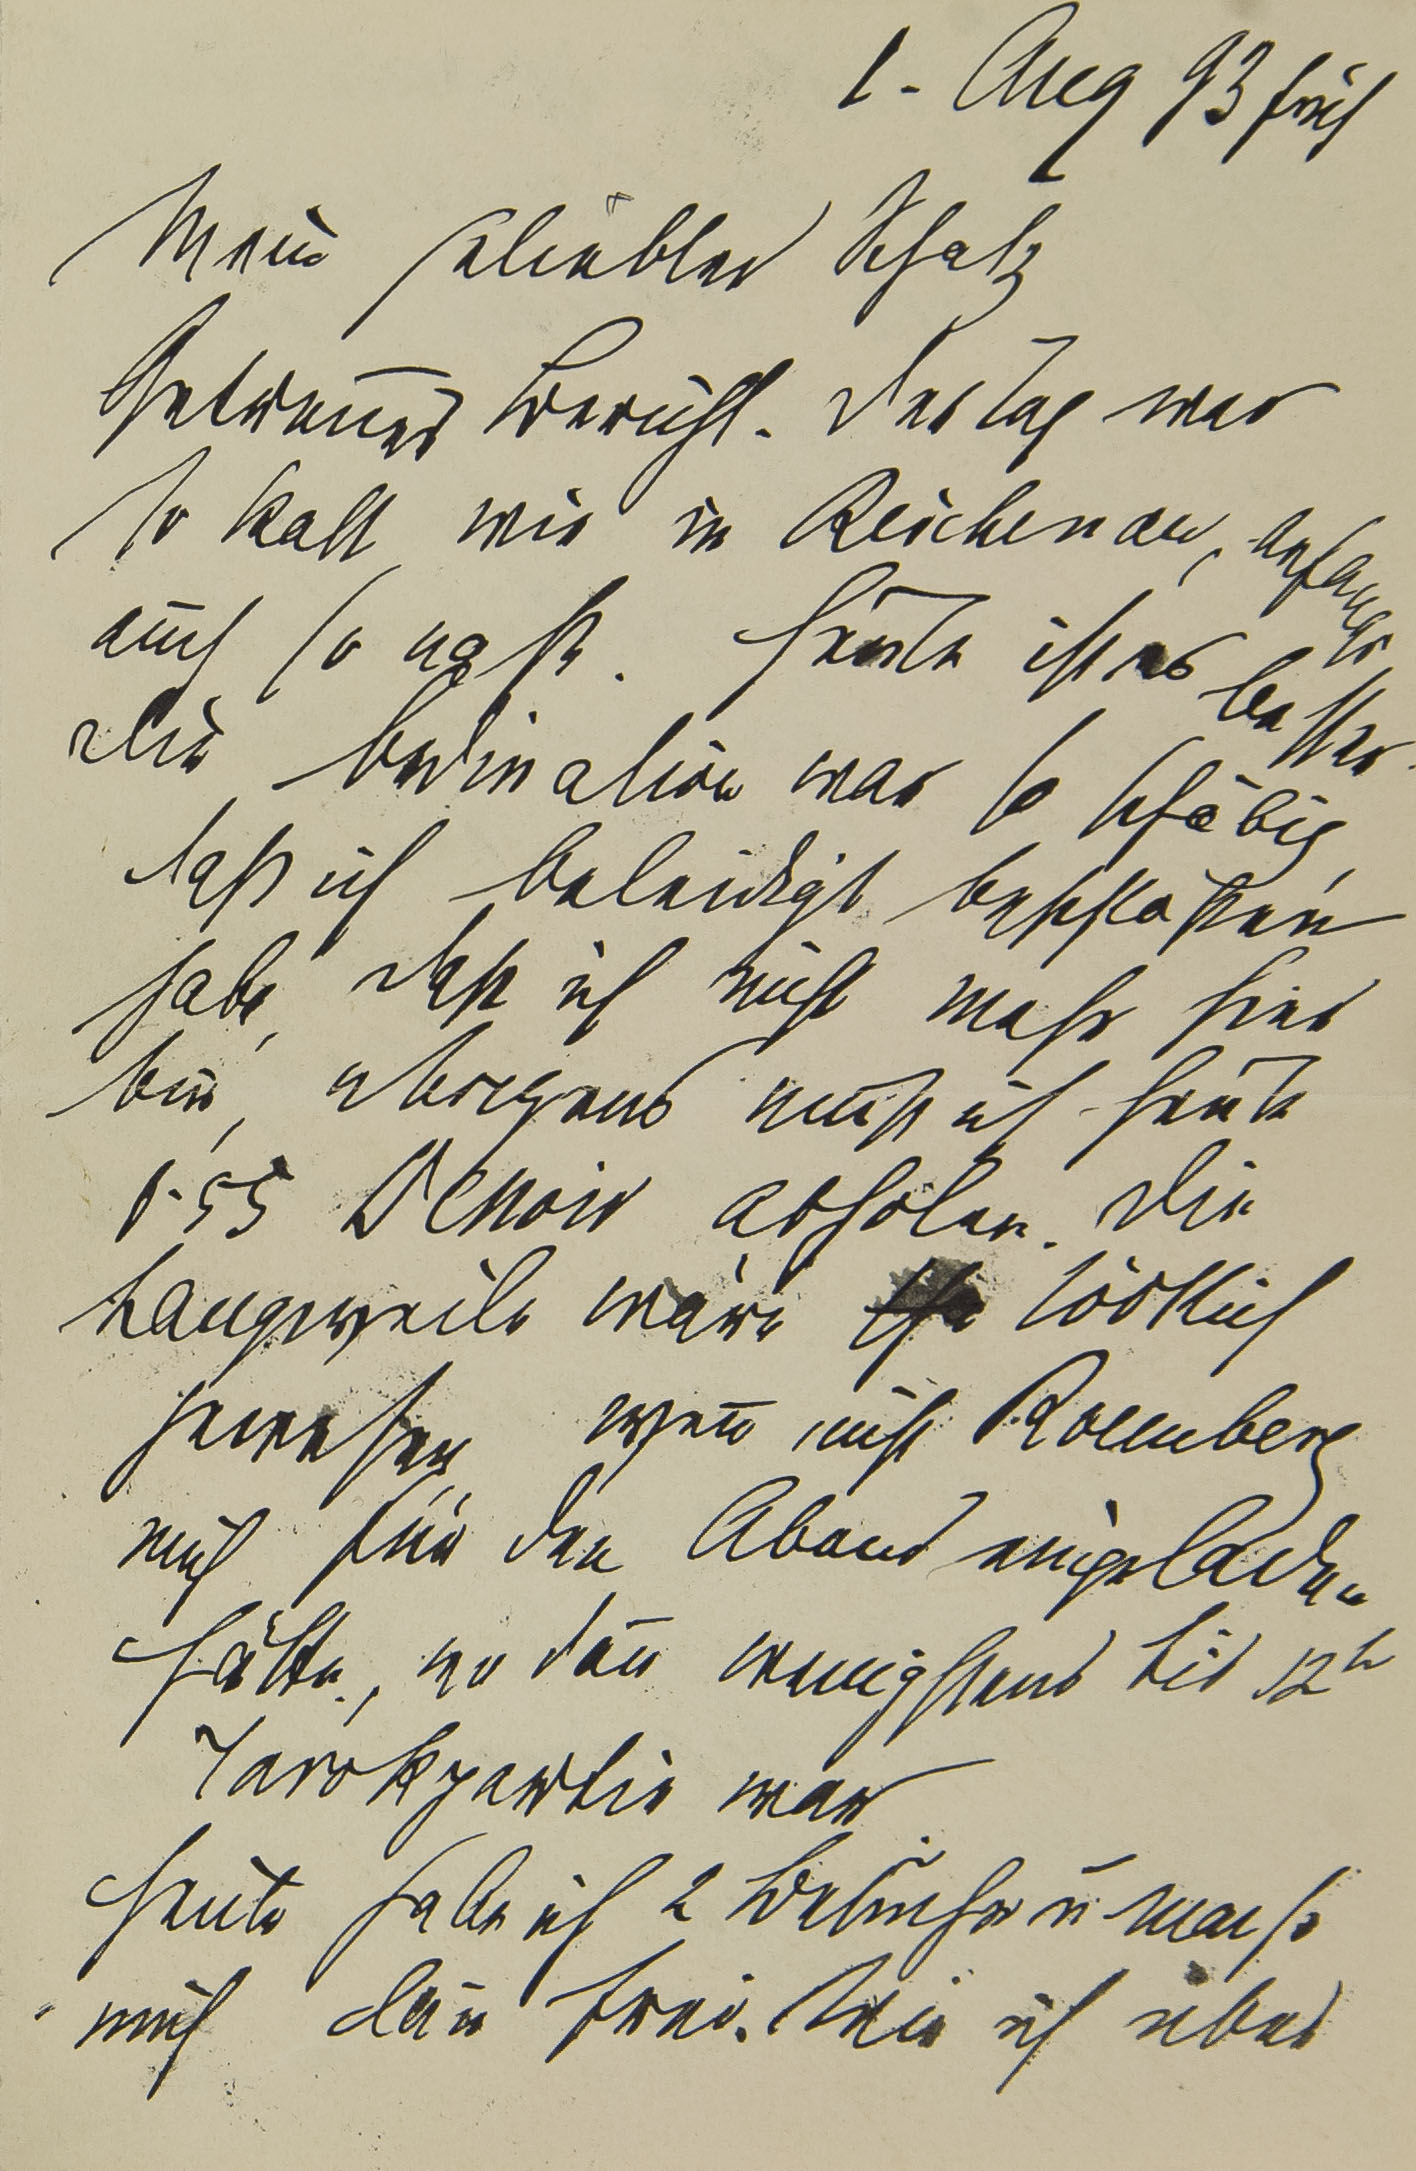 1. Aug 93 früh
Mein geliebter Schatz
Getreuer Bericht. Der Tag war
so kalt wie in Reichenau, anfangs
auch so naß. Heute ist es besser.
Die Ordination war so schäbig,
daß ich beleidigt beschlossen
habe, daß ich nicht mehr hier
bin, übrigens muß ich heute
1.55 abholen. Die
Langeweile wäre tödtlich
gewesen wen̄ nicht Rosenberg
mich für den Abend eingeladen
hätte, wo dan̄ wenigstens bis 12h
Tarokpartie war
Heute habe ich 2 Besuche u mache
mich dan̄ frei. Wie ich über